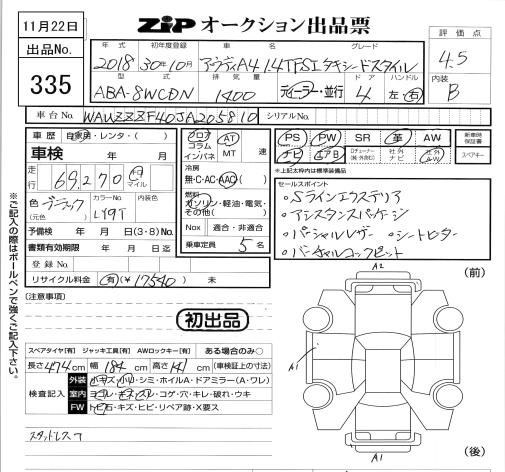 11月22日
出品No.
335
ZIP オークション出品票
評価点
4.5
内装
B
年式 初年度登録 車名 グレード
2018 30年10月 アウディA4 1.4TFSI タキシードスタイル
型式 排気量 ドア ハンドル
ABA-8WCDN 1400 ディーラー・並行 4 左・右
車台No. WAUZZZF40JA205810 シリアルNo.
車歴 自家用・レンタ・( )
車検 年 月
走行 69,270 キロ マイル
色 ブラック (元色) カラーNo. LY9T 内装色
予備検 年 月 日(3・8)No.
書類有効期限 年 月 日迄
登録No.
リサイクル料金 有(¥17540) 未
フロア コラム インパネ AT MT 速
冷房 無・C・AC・AAC
燃料 ガソリン・軽油・電気・その他( )
Nox 適合・非適合
乗車定員 5 名
PS PW SR 革 AW
ナビ エアB Dチューナー(純・社外正) 社外ナビ 社外AW
新車時保証書
スペアキー
※上記太枠内は標準装備品
セールスポイント
・Sラインエクステリア
・アシスタンスパッケージ
・パーシャルレザー ・シートヒーター
・バーチャルコックピット
※ご記入の際はボールペンで強くご記入下さい。
(注意事項)
初出品
スペアタイヤ[有] ジャッキ工具[有] AWロックキー[有] ある場合のみ○
長さ 474 cm 幅 184 cm 高さ 141 cm (車検証上の寸法)
検査記入
外装 小キズ・小凹・シミ・ホイルA・ドアミラー(A・ワレ)
室内 ヨゴレ・キズ・スレ・コゲ・穴・キレ・破れ・ウキ
FW トビ石・キズ・ヒビ・リペア跡・X要ス
スタッドレス
A2
(前)
A1
A1
(後)